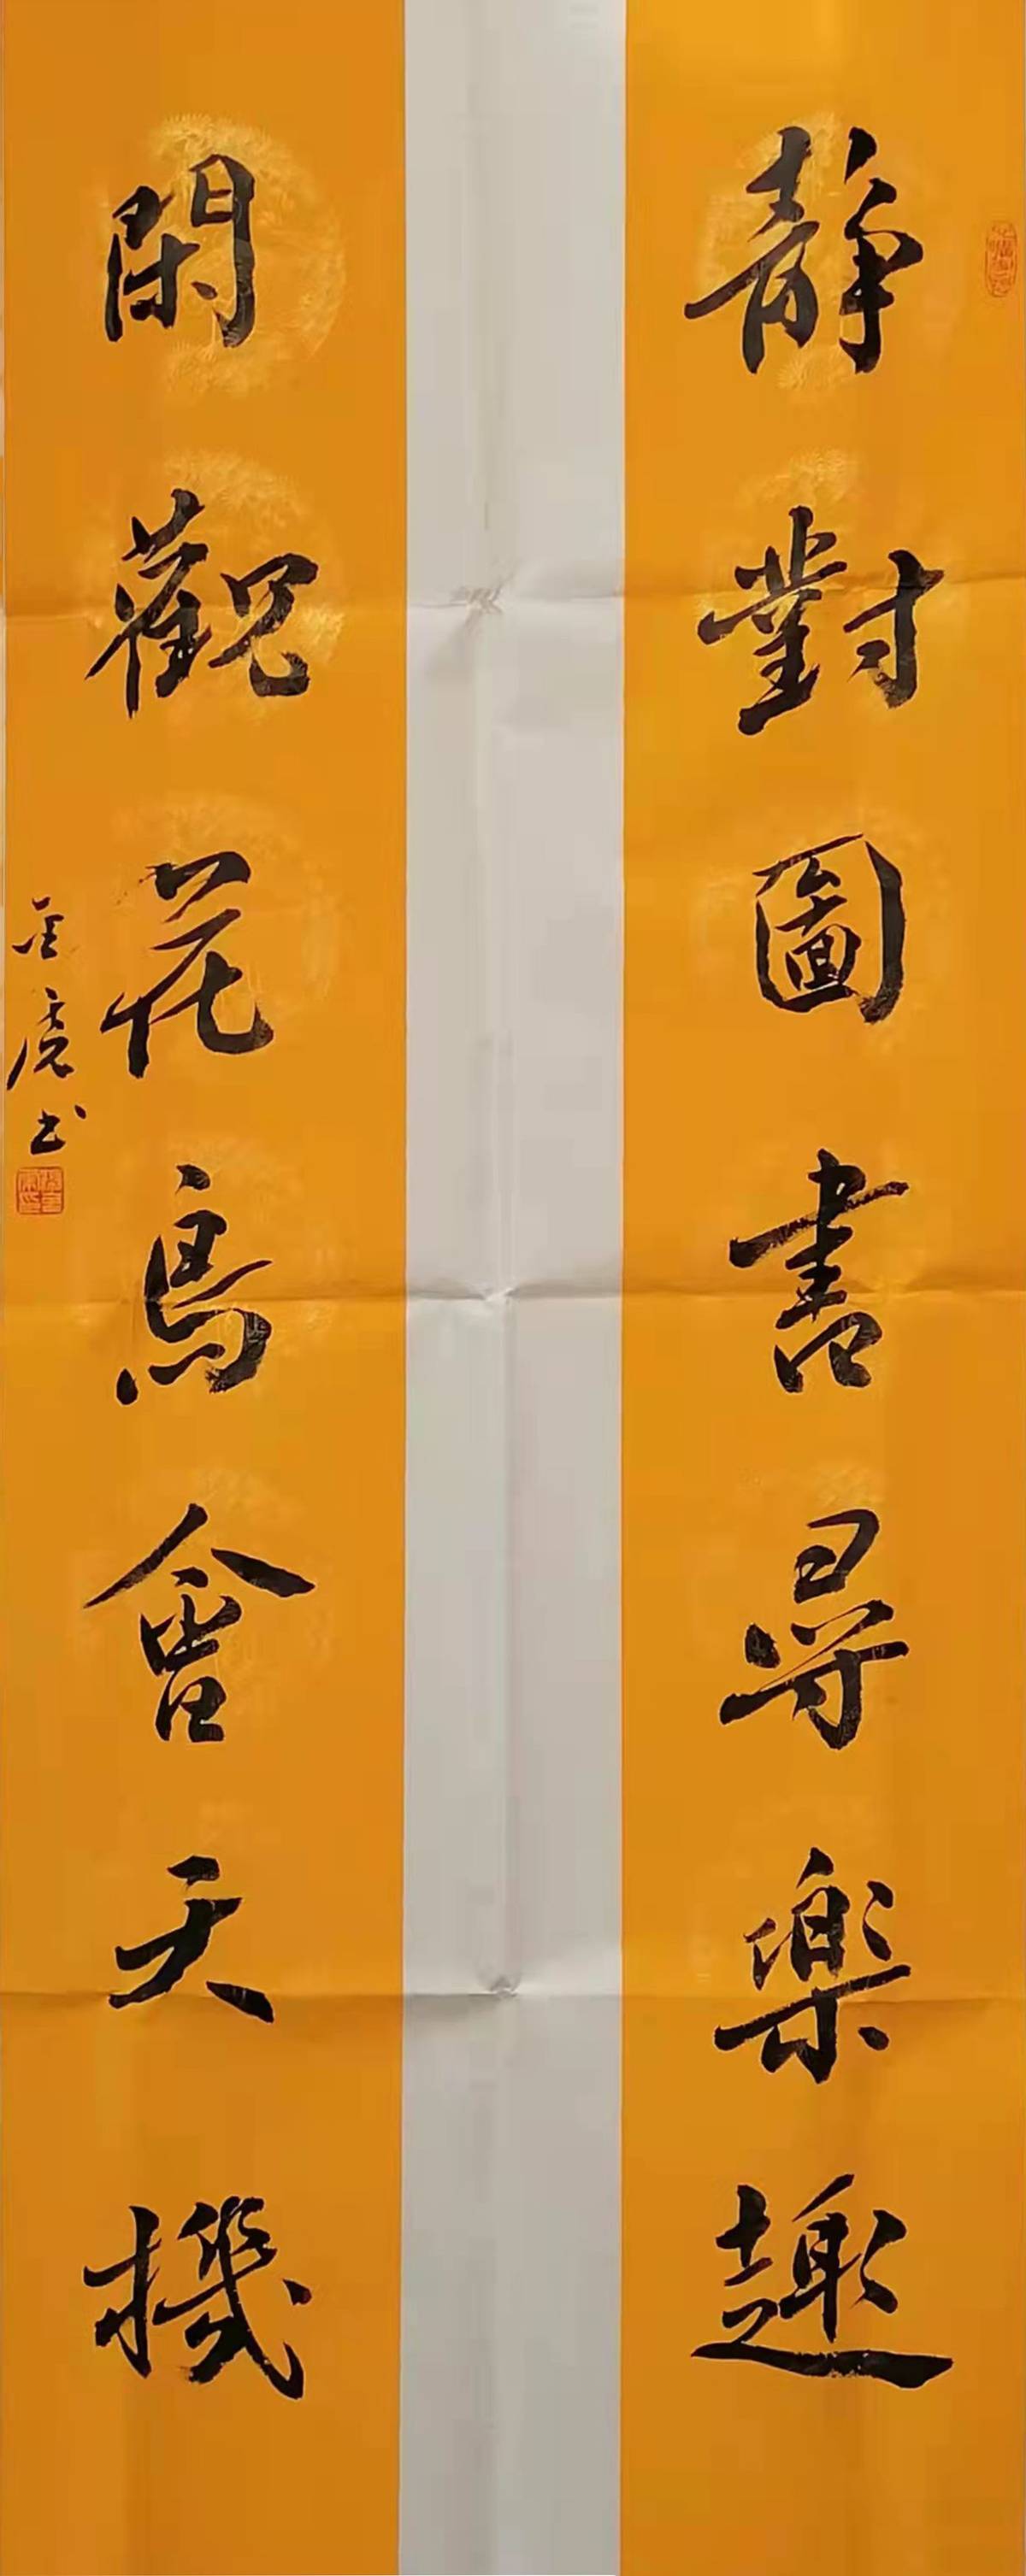 靜對圖書尋樂趣
閑觀花鳥會天機
金虎书